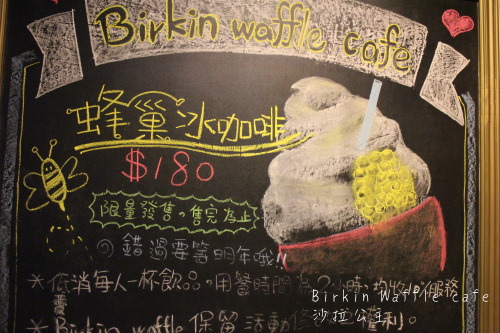 Birkin waffle cafe
蜂巢冰咖啡
$180
限量發售。售完為止
錯過要等明年哦!!
*低消每人一杯飲品。用餐時間為2小時。均收 服務
*Birkin waffle 保留活動
Birkin Waffle cafe
沙拉公主